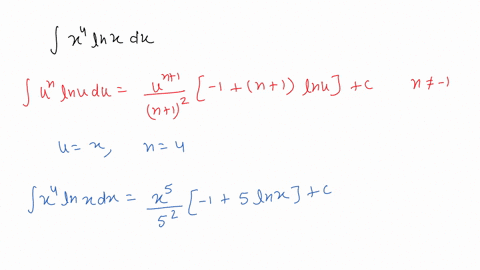 ∫ x⁴ ln x dx
∫ uⁿ ln u du = uⁿ⁺¹/(n+1)² [-1 + (n+1) ln u] + c    n ≠ -1
u = x,    n = 4
∫ x⁴ ln x dx = x⁵/5² [-1 + 5 ln x] + c